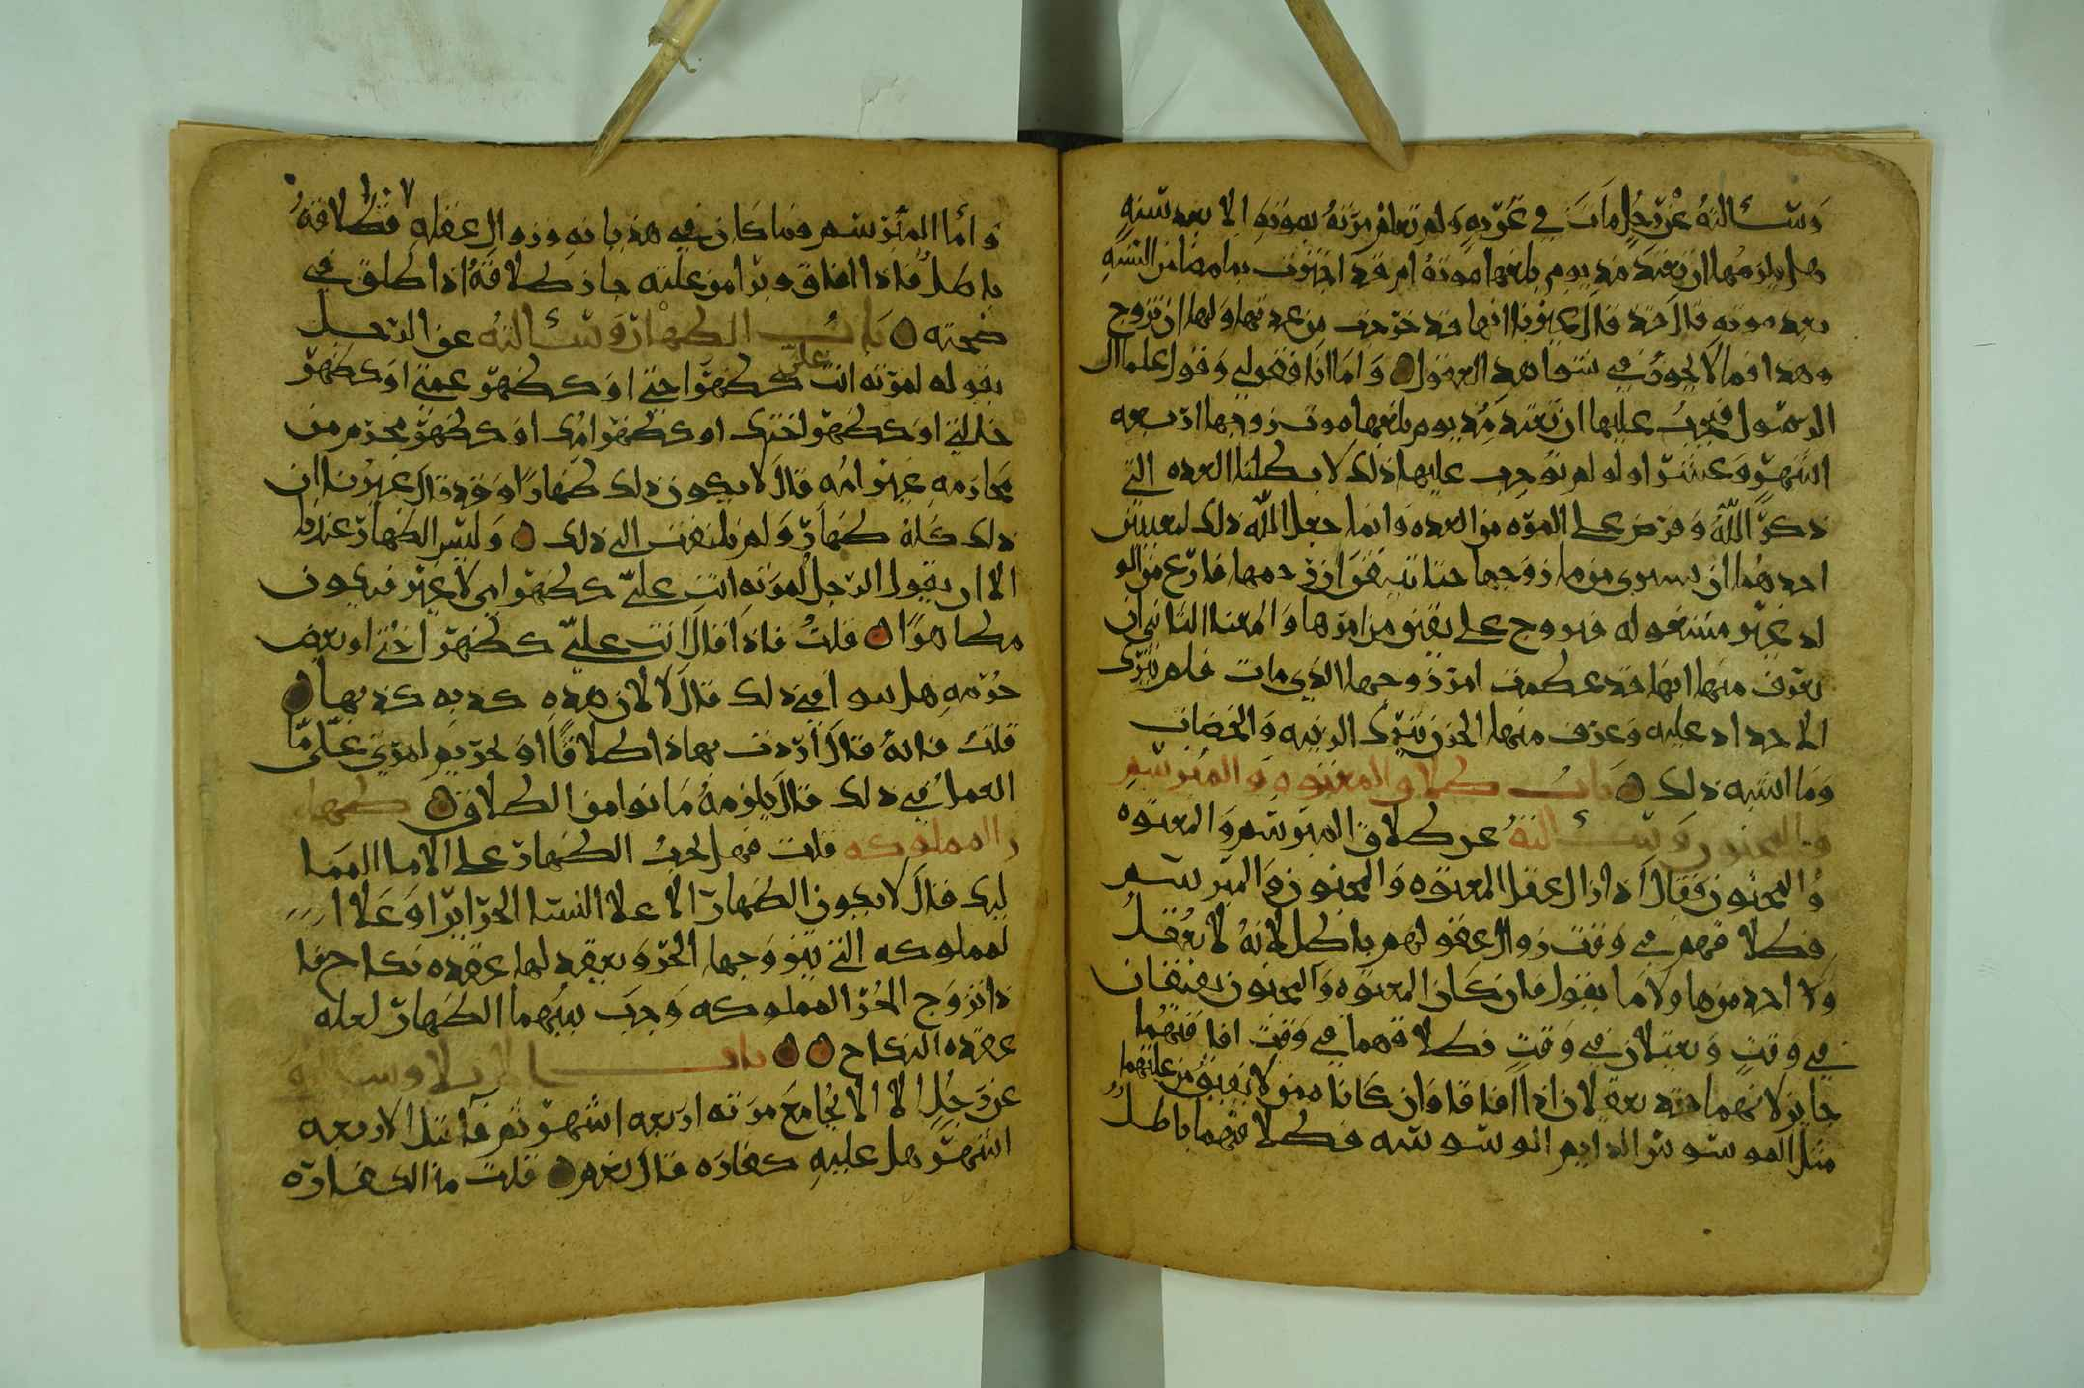 وسالته عن رجل مات في غربه ولم تعلم مرته بموته الا بعد سنه
هل يلزمها ان تعتد مذ يوم بلغها موته ام قد اجتزت بما مضا من السنه
بعد موته قال قد قال غيرنا انها قد خرجت من عدتها ولها ان تزوج
وهذا فما لا يجوز في شواهد العقول واما انا فقولي وقول علما ال
الرسول فيجب عليها ان تعتد مذ يوم بلغها موت زوجها اربعه
اشهر وعشرا ولو لم نوجب عليها ذلك لابطلنا العده التي
ذكر الله وفرض على المره من العده وانما جعل الله ذلك لمعنيين
احدهما ان يستبرى من ما زوجها حتا تيقن ان رحمها فارغ من الو
لد غير مشغوله فتزوج على يقين من امرها والمعنا الثاني ان
يعرف منها انها قد عظمت امر زوجها الذي مات فلم تترك
الاحداد عليه وعرف منها الحزن بترك الزينه والخضاب
وما اشبه ذلك باب طلاق المعتوه والمبرسم
والمجنون وسالته عن طلاق المبرسم والمعتوه
والمجنون فقال اذا زال عقل المعتوه والمجنون والمبرسم
فطلاقهم في وقت زوال عقولهم باطل لانه لا يعقل
ولا احد منها ولا ما يقول فان كان المعتوه والمجنون يفيقان
في وقت ويعتلان في وقت فطلاقهما في وقت افاقتهما
جايز لانهما قد يعقلان اذا افاقا وان كانا ممن لا يفيق من علتهما
مثل الموسوس الدايم الوسوسه فطلاقهما باطل
واما المبرسم وما كان فيه هذيانه وزوال عقله فطلاقه
باطل فاذا افاق وبرا من علته جاز طلاقه اذا طلق في
صحته باب الظهار وسالته عن الرجل
يقوله لمرته انت علي كظهر اختي او كظهر عمتي او كظهر
خالتي او كظهر اختك او كظهر امك او كظهر محرم من
محارمه غير امه قال لا يكون ذلك ظهارا وقد قال غيرنا ان
ذلك كله ظهار ولم يلتفت الى ذلك وليس الظهار عندنا
الا ان يقول الرجل لمرته انت علي كظهر امي لا غير فيكون
مظاهرا قلت فاذا قال انت علي كظهر اختي او بعض
حرمه هل سوا في ذلك قال لا لان هذه كذبه كذبها
قلت فانه قال اردت بهاذا طلاقا او تحريم امرتي علي ما
العمل في ذلك قال يلزمه ما نوا من الطلاق ظها
ر المملوكه قلت فهل يجب الظهار على الاما المما
ليك قال لا يكون الظهار الا علا النسا الحراير او علا ا
لمملوكه التي يتزوجها الحر ويعقد لها عقده نكاح فا
ذا تزوج الحر المملوكه وجب بينهما الظهار لعله
عقده النكاح باب الايلا وسالته
عن رجل الا الا يجامع مرته اربعه اشهر ثم فا قبل الاربعه
اشهر هل عليه كفاره قال نعم قلت ما الكفاره